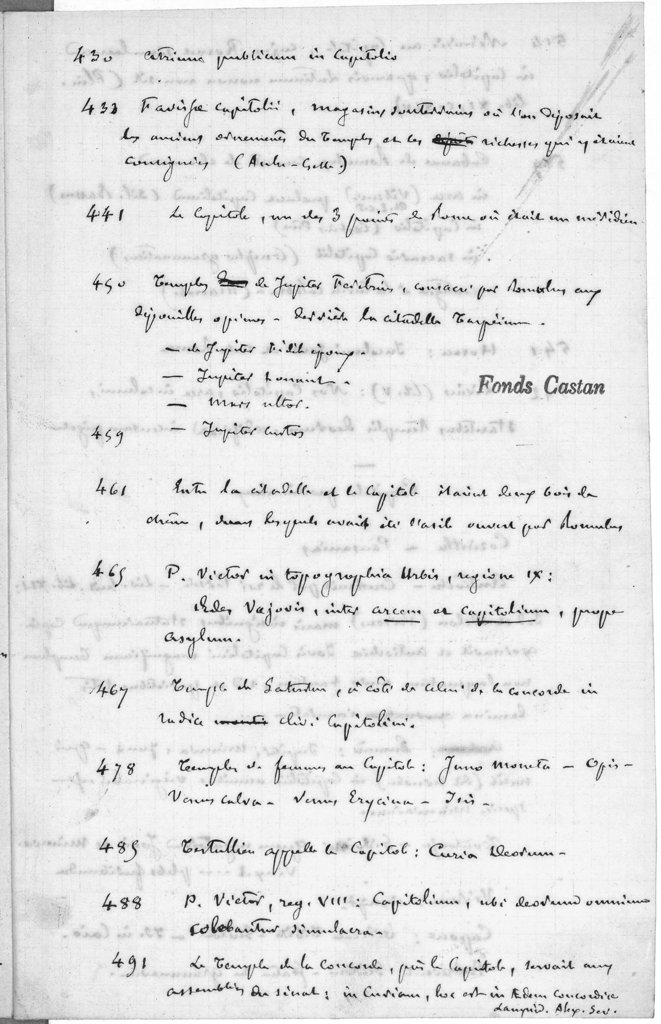 430 atrium publicum in Capitolio
433 Favissæ Capitolii, magasins souterrains où l'on déposait
les anciens ornements des Temples et les richesses qui y étaient
consignées (Aulu-Gelle.)
441 Le Capitole, un des 3 points de Rome où était un méridien
450 Temples de Jupiter Feretrius, consacré par Romulus aux
dépouilles opimes - derrière la citadelle Tarpéienne.
— de Jupiter
— Jupiter tonnant.
Fonds Castan
— Mars ultor.
459 — Jupiter custos
461 Entre la citadelle et le Capitole étaient deux bois de
chêne, dans lesquels avait été l'asile ouvert par Romulus
465 P. Victor in topographia Urbis, regione IX:
Ædes Vejovis, inter arcem et Capitolium, prope
asylum.
467 Temple de Saturne, à côté de celui de la Concorde in
radice clivi Capitolini.
478 Temples de femmes au Capitole: Juno Moneta — Opis —
Venus calva — Venus Erycina — Isis —
485 Tertullien appelle le Capitole: Curia Deorum —
488 P. Victor, reg. VIII: Capitolium, ubi deorum omnium
colebantur simulacra —
491 Le Temple de la Concorde, près le Capitole, servait aux
assemblées du sénat: in Curiam, hoc est in Ædem Concordiæ
Lamprid. Alex. Sev.